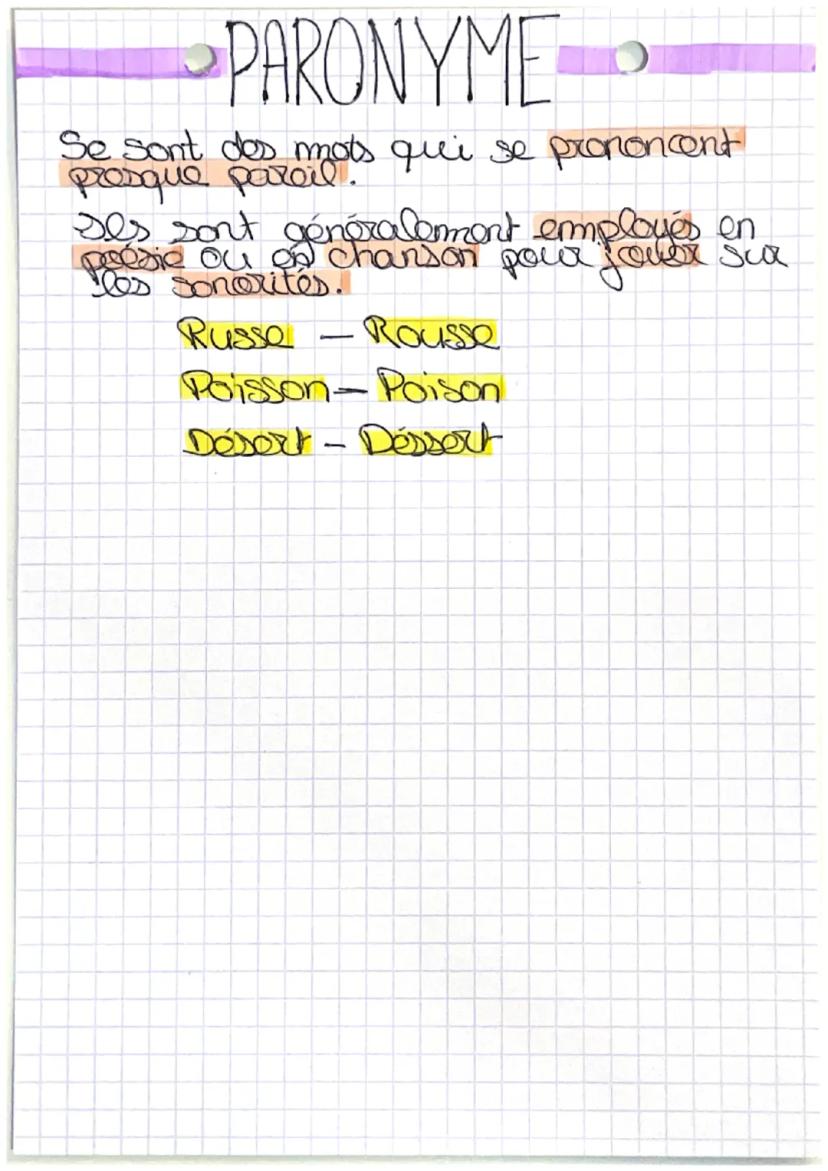 PARONYME
Se sont des mots qui se prononcent
presque pareil.
Ils sont généralement employés en
poésie ou en chanson pour jouer sur
les sonorités.
Russe – Rousse
Poisson – Poison
Désert – Déssert